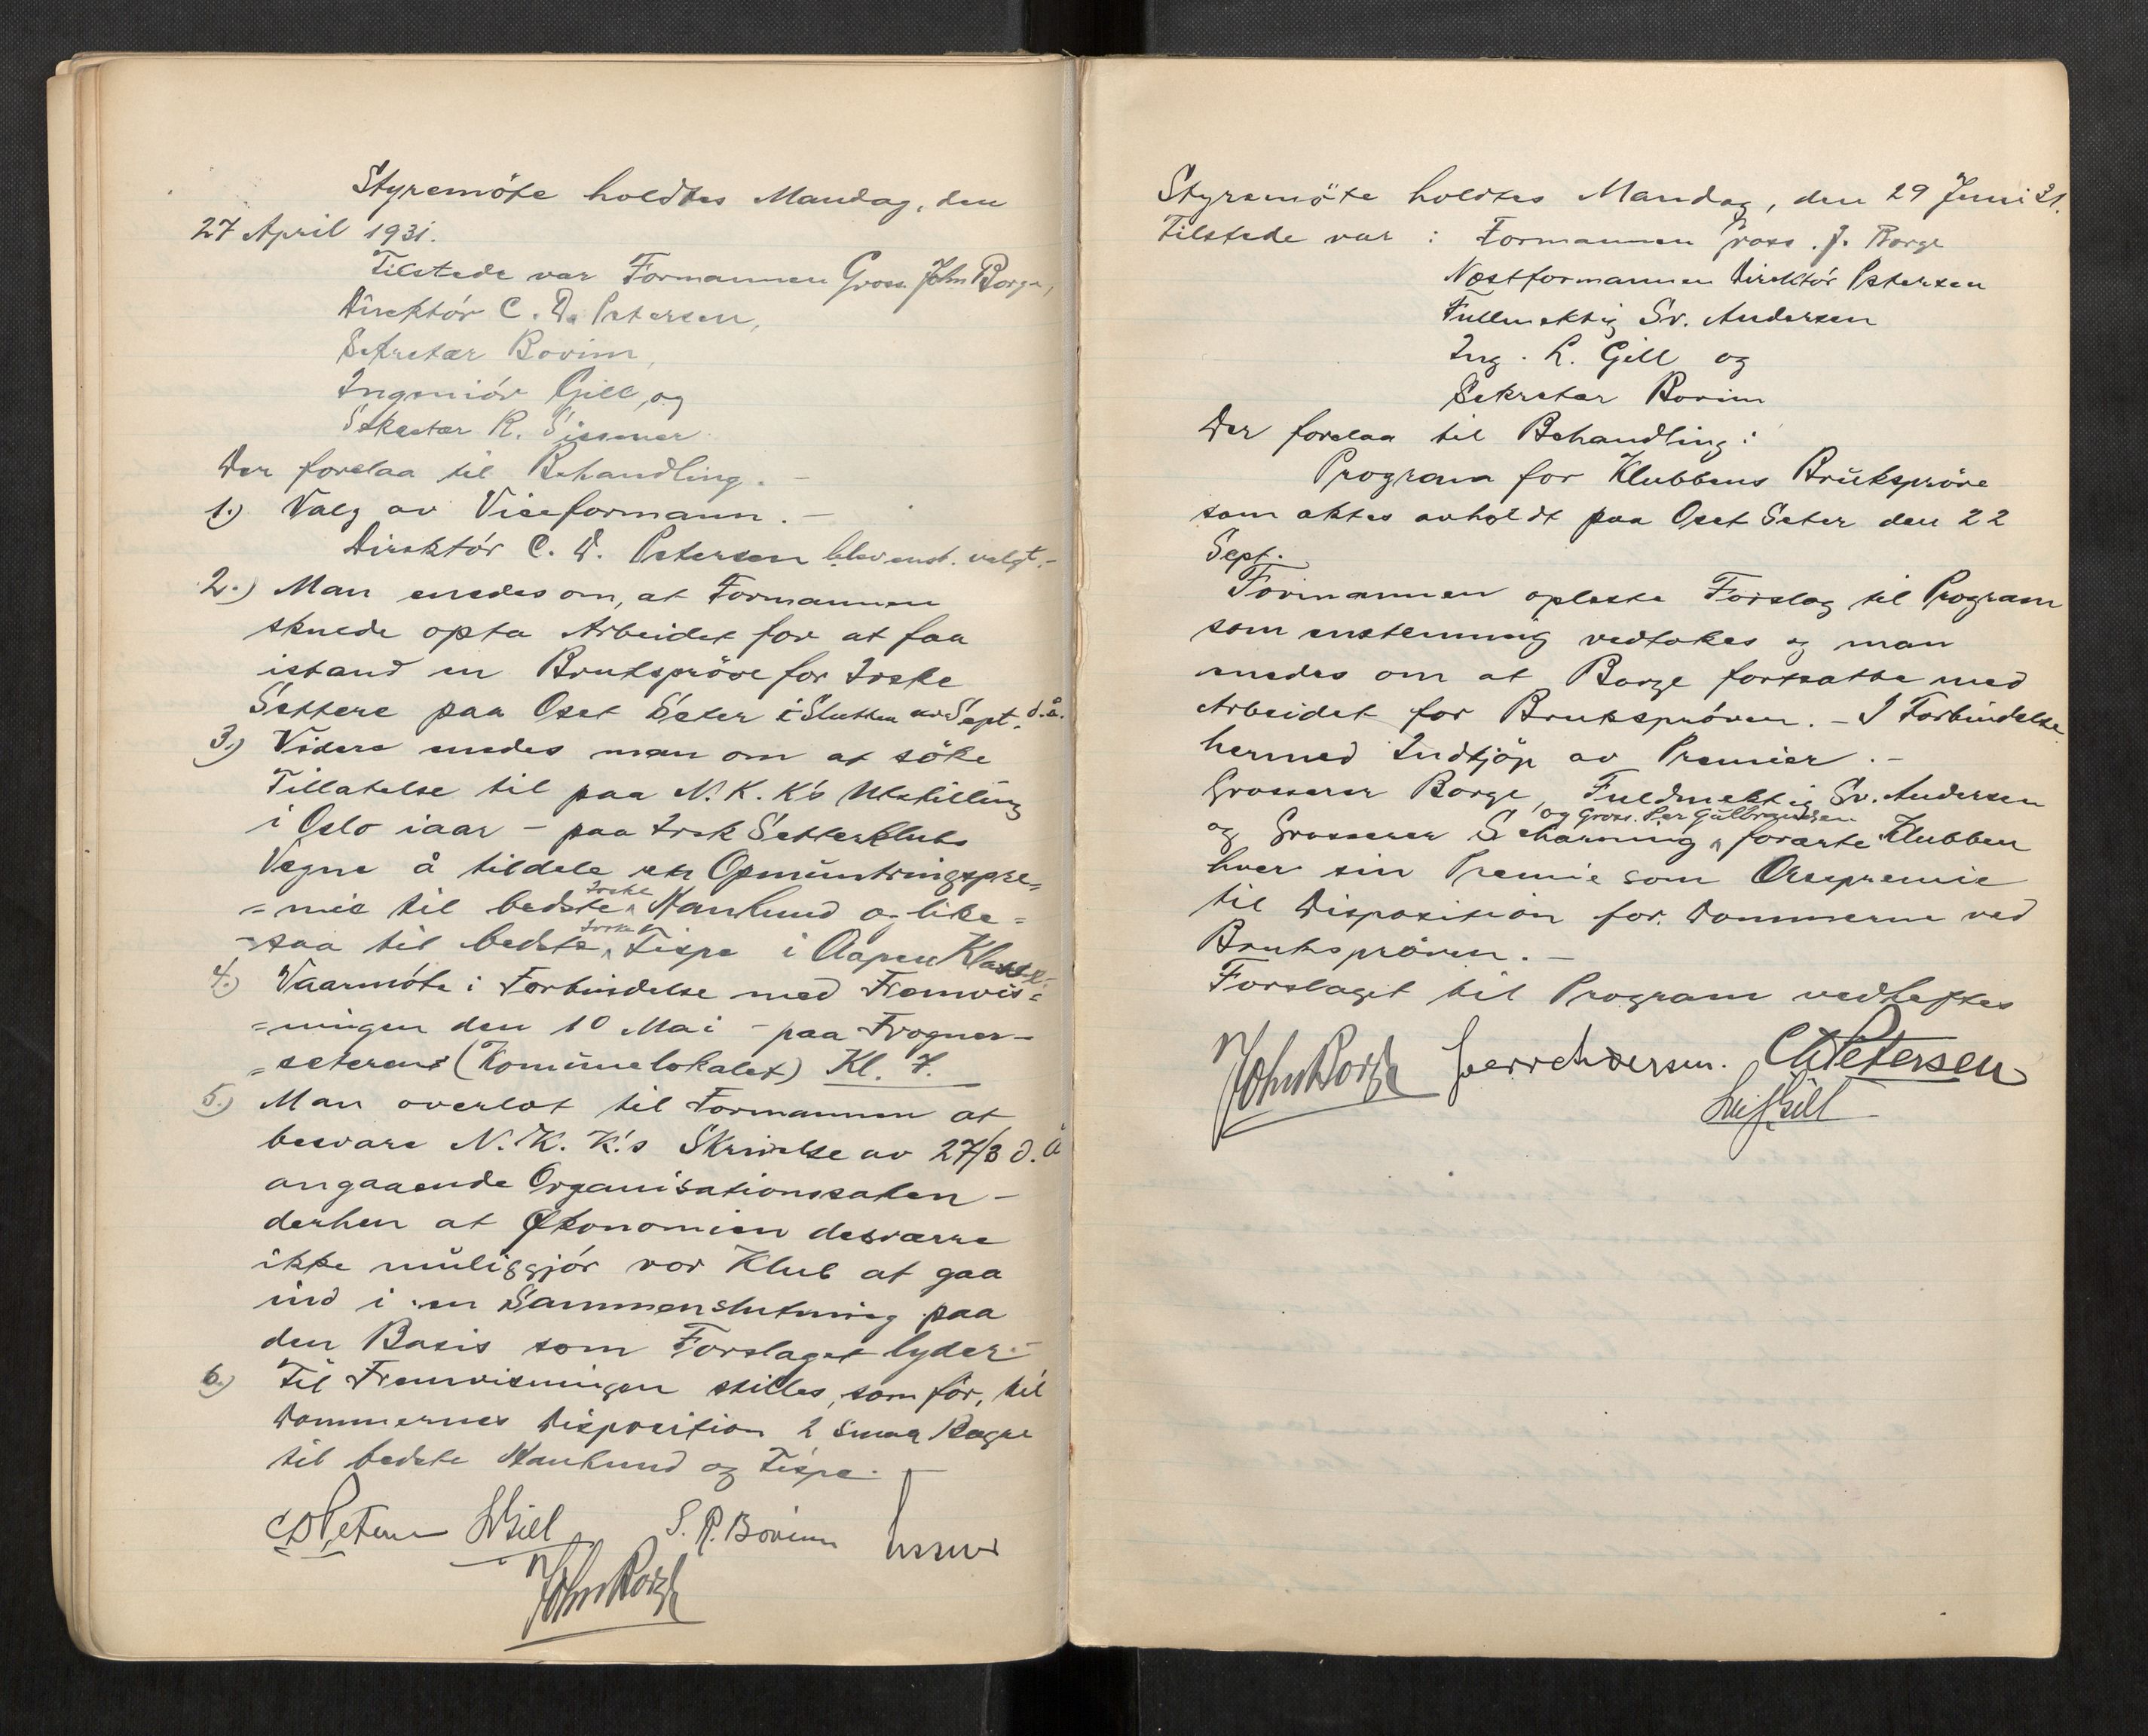 Styremöte holdtes Mandag, den
27 April 1931.
Tilstede var Formannen Gross. John Borge,
Direktör C. D. Petersen,
Sekretær Bovim,
Ingeniör Gill, og
Sekretær R. Sissener
Der forelaa til Behandling. –
1.) Valg av Viseformann. –
Direktör C. D. Petersen blev enst. valgt. –
2.) Man enedes om, at Formannen
skulde opta Arbeidet for at faa
istand en Brukspröve for Irske
Settere paa Oset Seter i Slutten av Sept. d.å.
3.) Videre enedes man om at söke
Tillatelse til paa N.K.K's Utstilling
i Oslo iaar – paa Irsk Setterklubs
Vegne å tildele en Opmuntringspre=
=mie til bedste Irske Hanhund og like=
=saa til bedste Irske Tispe i Aapen Klasse. –
4.) Vaarmöte i Forbindelse med Fremvis=
=ningen den 10 Mai – paa Frogner=
=seteren (Komunelokalet) Kl. 7.
5.) Man overlot til Formannen at
besvare N.K.K.'s Skrivelse av 27/3 d.å
angaaende Organisationssaken –
derhen at Økonomien desværre
ikke muliggjör vor Klub at gaa
ind i en Sammenslutning paa
den Basis som Forslaget lyder. –
6.) Til Fremvisningen stilles, som för, til
Dommernes Disposition 2 smaa Bægre
til bedste Hanhund og Tispe. –
CDPetersen LGill S. R. Bovim
John Borge
Styremöte holdtes Mandag, den 29 Juni 31.
Tilstede var : Formannen Gross. J. Borge
Næstformannen Direktör Petersen
Fullmektig Sv. Andersen
Ing. L. Gill og
Sekretær Bovim
Der forelaa til Behandling :
Program for Klubbens Brukspröve
som aktes avholdt paa Oset Seter den 22
Sept.
Formannen opleste Forslag til Program
som enstemmig vedtokes og man
enedes om at Borge fortsatte med
Arbeidet for Brukspröven. – I Forbindelse
hermed Indkjöp av Premier. –
Grosserer Borge, Fuldmektig Sv. Andersen
og Grosserer Scharning og Gross. Per Gulbrandsen forærte Klubben
hver sin Premie som Ærespremie
til Disposition for Dommerne ved
Brukspröven. –
Forslaget til Program vedheftes
John Borge Sverre Andersen. CDPetersen
Leif Gill